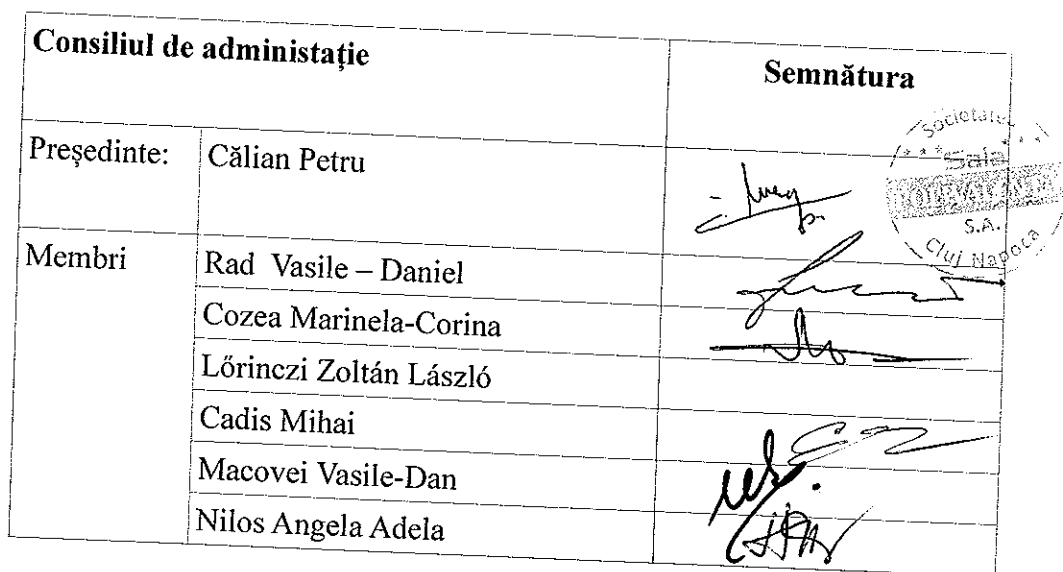 Consiliul de administație
Semnătura
Președinte: Călian Petru
Membri Rad Vasile – Daniel
Cozea Marinela-Corina
Lőrinczi Zoltán László
Cadis Mihai
Macovei Vasile-Dan
Nilos Angela Adela
Societatea
Sala
POLIVALENTA
S.A.
Cluj Napoca